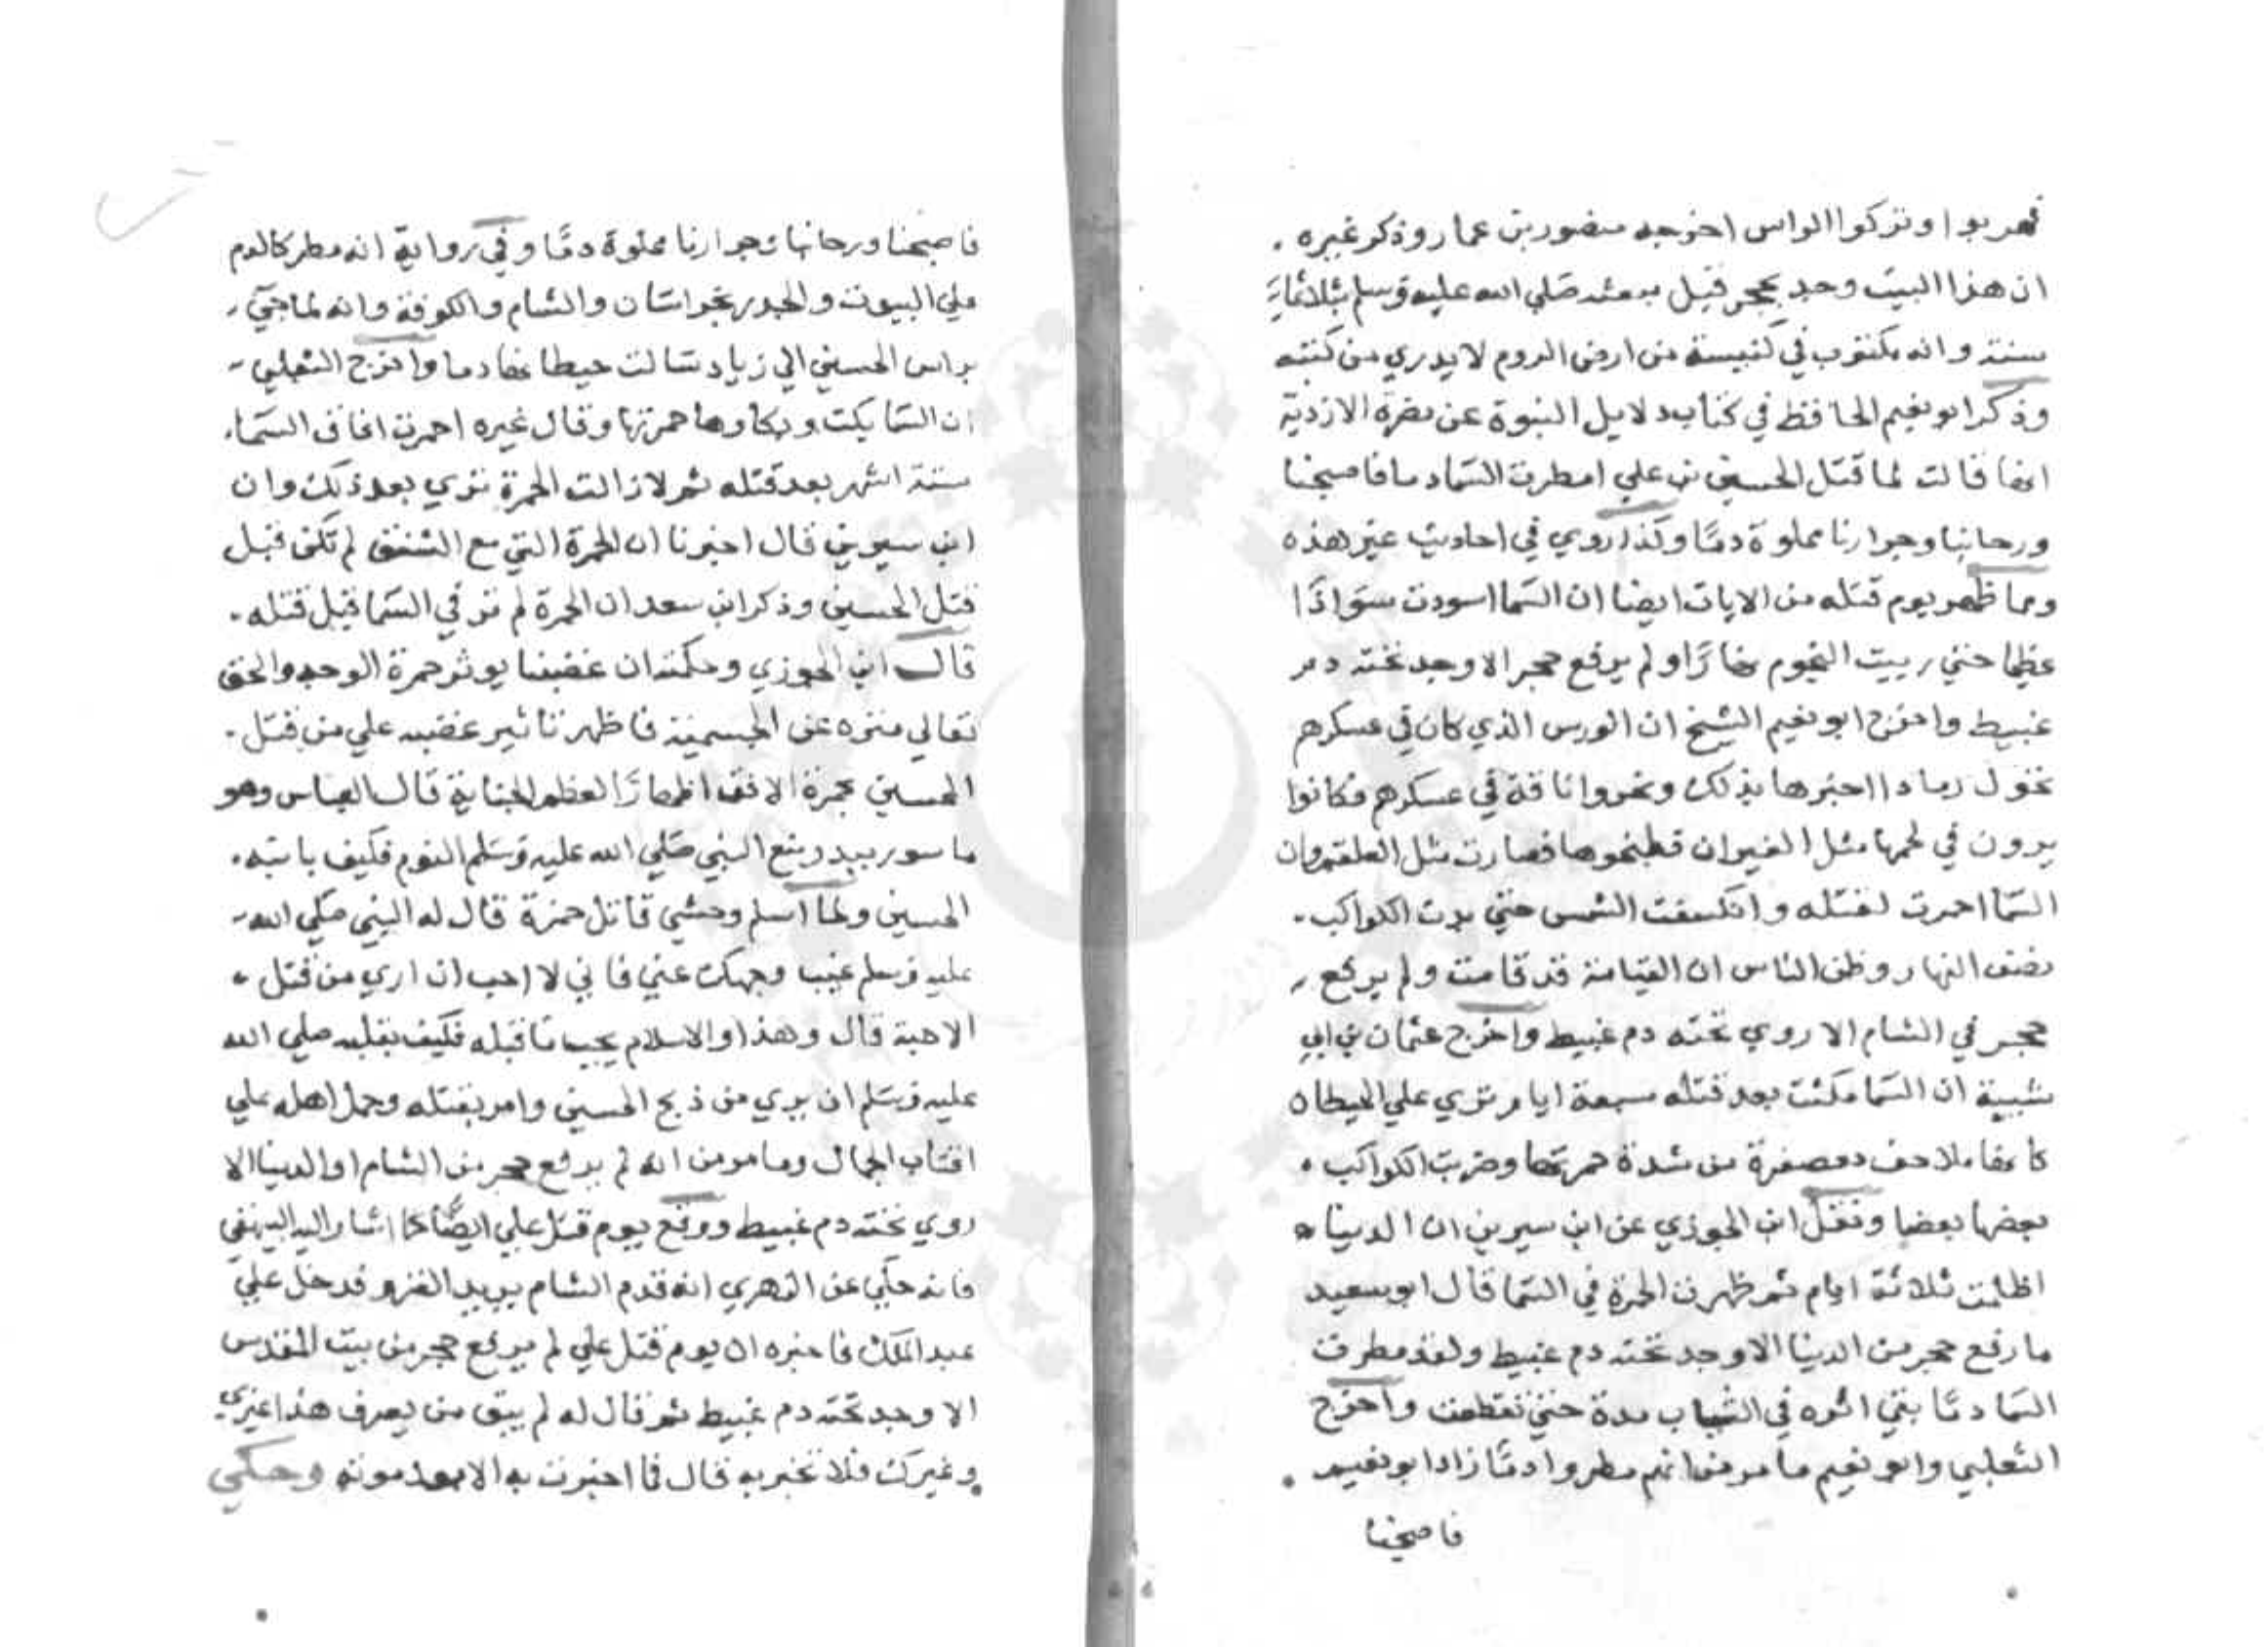 فهربوا وتركوا الراس اخرجه منصور بن عمار وذكر غيره .
ان هذا البيت وجد بحجر قبل مبعثه صلي الله عليه وسلم بثلاثماية
سنة وانه مكتوب في كنيسة من ارض الروم لا يدري من كتبه
وذكر ابو نعيم الحافظ في كتاب دلايل النبوة عن نضرة الازدية
انها قالت لما قتل الحسين بن علي امطرت السما دما فاصبحنا
ورحاتنا وجرارنا مملوة دمًا وكذا روي في احاديث غير هذه
ومما ظهر يوم قتله من الايات ايضا ان السما اسودت سوادًا
عظيما حتي رييت النجوم نهارًا ولم يرفع حجر الا وجد تحته دم
غبيط واخرج ابو نعيم الشيخ ان الورس الذي كان في عسكرهم
تحول رمادا اخبرها بذلك ونحروا ناقة في عسكرهم فكانوا
يرون في لحمها مثل الفيران فطبخوها فصارت مثل العلقم وان
السما احمرت لقتله وانكسفت الشمس حتي بدت الكواكب .
نصف النهار وظن الناس ان القيامة قد قامت ولم يرفع
حجر في الشام الا روي تحته دم غبيط واخرج عثمان بن ابي
شيبة ان السما مكثت بعد قتله سبعة ايام تري علي الحيطان
كانها ملاحف معصفرة من شدة حمرتها وضربت الكواكب .
بعضها بعضا ونقل ابن الجوزي عن ابن سيرين ان الدنيا
اظلمت ثلاثة ايام ثم ظهرت الحمرة في السما قال ابو سعيد
ما رفع حجر من الدنيا الا وجد تحته دم غبيط ولقد مطرت
السما دمًا بقي اثره في الثياب مدة حتي تقطعت واخرج
الثعلبي وابو نعيم ما مر من انهم مطروا دمًا زاد ابو نعيم .
فاصبحنا
فاصبحنا ورحاتنا وجرارنا مملوة دمًا وفي رواية انه مطر كالدم
علي البيوت والجدر بخراسان والشام والكوفة وانه لما جيء
براس الحسين الي زياد سالت حيطانها دما واخرج الثعلبي
ان السما بكت وبكاوها حمرتها وقال غيره احمرت افاق السما .
ستة اشهر بعد قتله ثم لا زالت الحمرة تري بعد ذلك وان
ابن سيرين قال اخبرنا ان الحمرة التي مع الشفق لم تكن قبل
قتل الحسين وذكر ابن سعد ان الحمرة لم تر في السما قبل قتله .
قال ابن الجوزي وحكمته ان غضبنا يوثر حمرة الوجه والحق
تعالي منزه عن الجسمية فاظهر تاثير غضبه علي من قتل .
الحسين بحمرة الافق اظهارًا لعظم الجناية قال العباس وهو
ماسور ببدر منع النبي صلي الله عليه وسلم النوم فكيف بانينه .
الحسين ولما اسلم وحشي قاتل حمزة قال له النبي صلي الله
عليه وسلم غيب وجهك عني فاني لا احب ان اري من قتل
الاحبة قال وهذا والاسلام يجب ما قبله فكيف بقلبه صلي الله
عليه وسلم ان يري من ذبح الحسين وامر بقتله وحمل اهله علي
اقتاب الجمال وما مر من انه لم يرفع حجر من الشام او الدنيا الا
روي تحته دم غبيط ووقع يوم قتل علي ايضًا كما اشار اليه البيهقي
فانه حكي عن الزهري انه قدم الشام يريد الغزو فدخل علي
عبد الملك فاخبره ان يوم قتل علي لم يرفع حجر من بيت المقدس
الا وجد تحته دم غبيط ثم قال له لم يبق من يعرف هذا غيري
وغيرك فلا تخبر به قال فما اخبرت به الا بعد موته وحكي